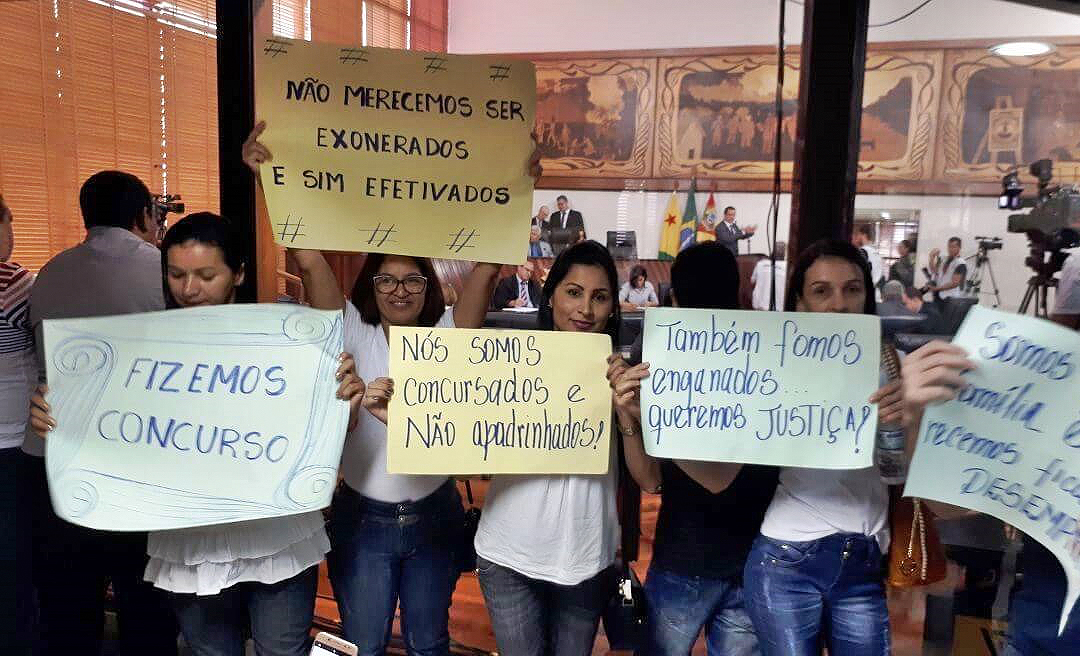 # # # #
NÃO MERECEMOS SER
EXONERADOS
E SIM EFETIVADOS
# # #
FIZEMOS
CONCURSO
NÓS SOMOS
CONCURSADOS e
NÃO apadrinhados!
Também fomos
enganados....
queremos JUSTIÇA!
Somos
família
recemos fica
DESEMP